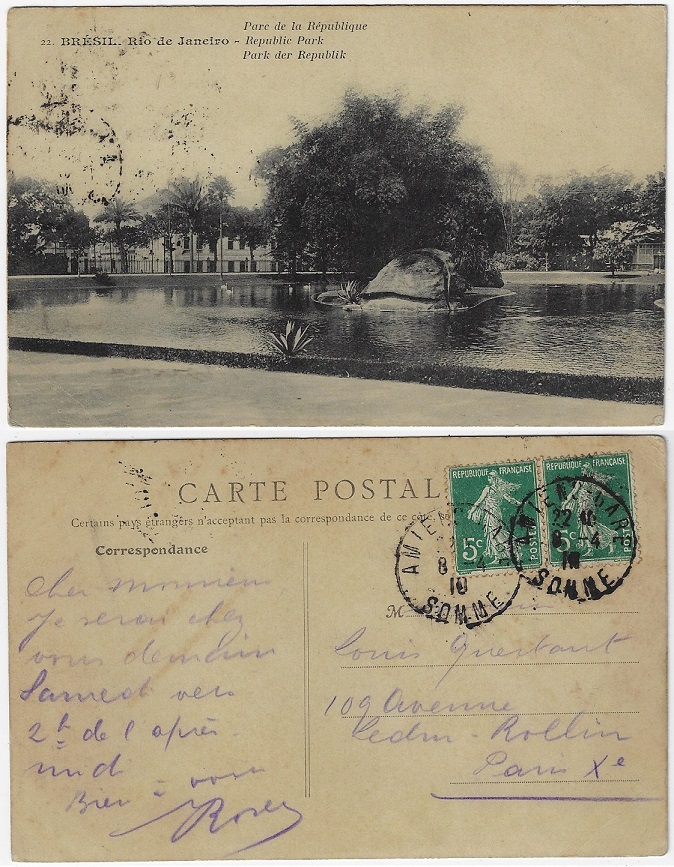 Parc de la République
22. BRÉSIL. Rio de Janeiro - Republic Park
Park der Republik
CARTE POSTAL
Certains pays étrangers n'acceptent pas la correspondance de ce côté
Correspondance
REPUBLIQUE FRANÇAISE
5c
POSTES
REPUBLIQUE FRANÇAISE
5c
POSTES
AMIENS GARE
8 -4
10
SOMME
AMIENS GARE
22
8 -4
10
SOMME
Cher Monsieur
Je serai chez
vous demain
Samedi vers
2h de l'après
midi
Bien à vous
M
Louis
109 Avenue
Ledru-Rollin
Paris Xe